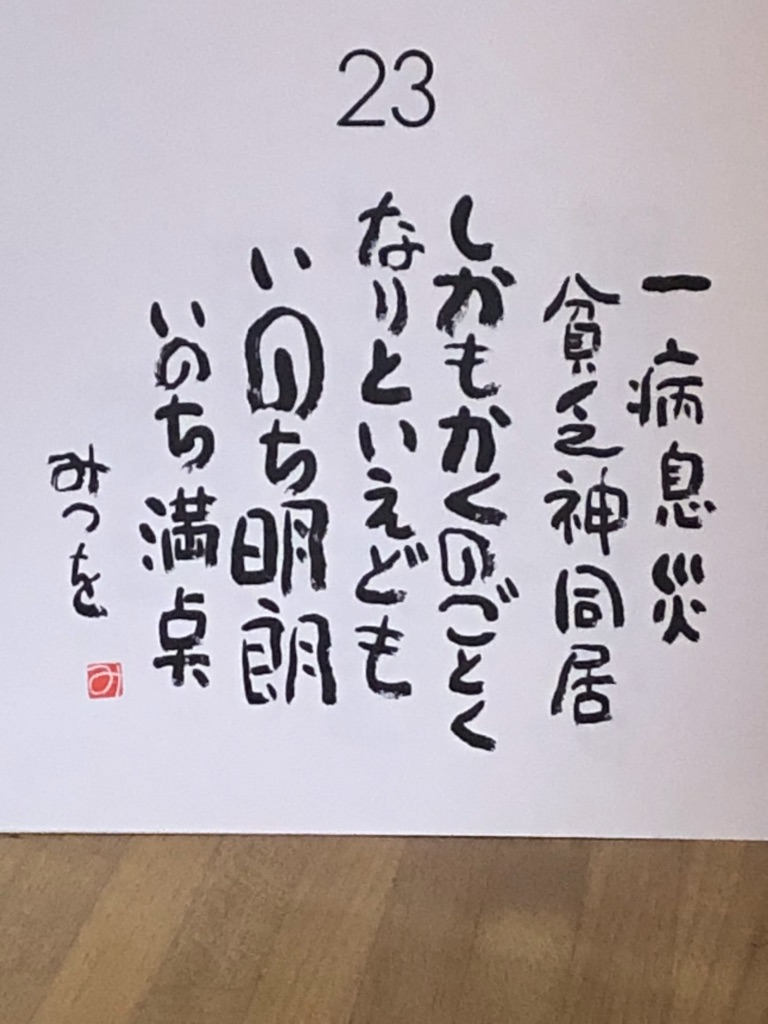 23
一病息災
貧乏神同居
しかもかくのごとく
なりといえども
いのち明朗
いのち満点
みつを
み